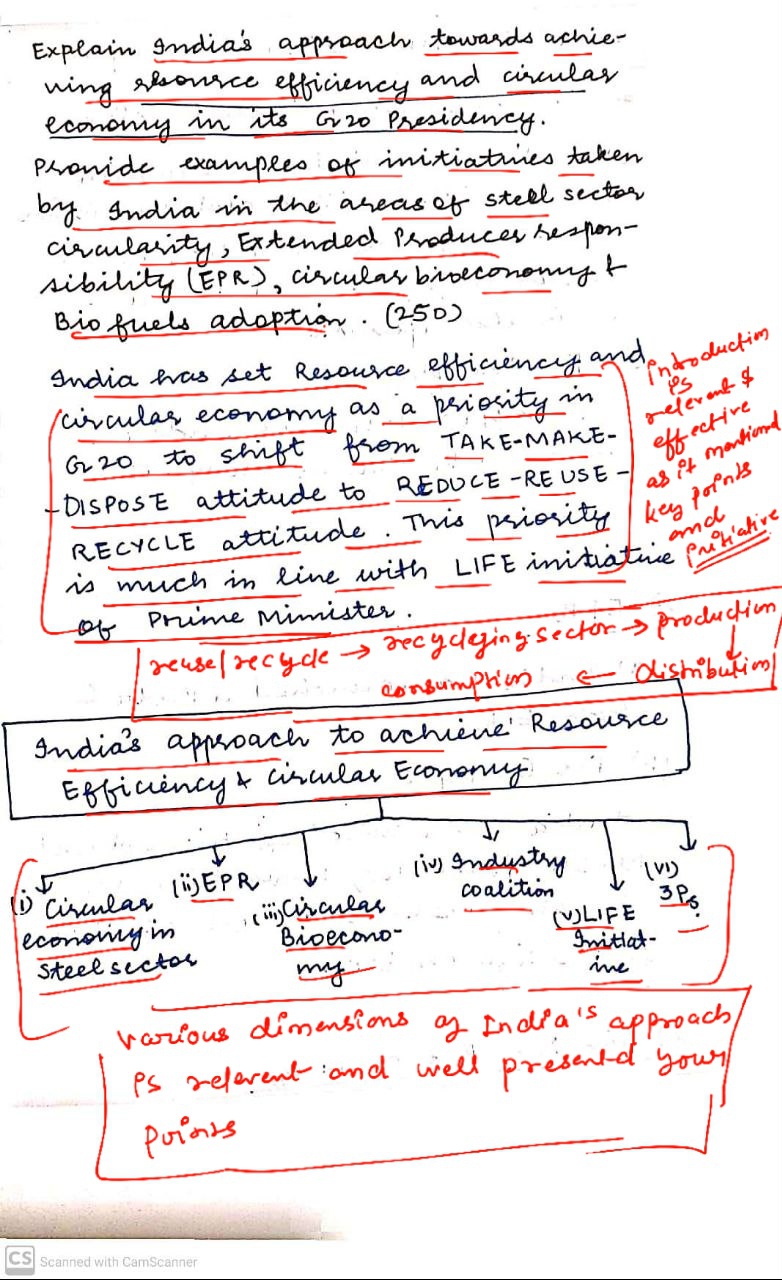 Explain India's approach towards achie-
ving resource efficiency and circular
economy in its G20 Presidency.
Provide examples of initiatives taken
by India in the areas of steel sector
circularity, Extended Producer respon-
sibility (EPR), circular bioeconomy &
Bio fuels adoption. (250)
India has set Resource efficiency and
circular economy as a priority in
G20 to shift from TAKE-MAKE-
-DISPOSE attitude to REDUCE-REUSE-
RECYCLE attitude. This priority
is much in line with LIFE initiative
of Prime Minister.
Introduction
is
relevent &
effective
as it mentioned
key points
and
initiative
reuse/recycle → recycleging sector → production
↓
consumption ← distribution
India's approach to achieve Resource
Efficiency & circular Economy
(i) Circular
economy in
Steel sector
(ii) EPR
(iii) Circular
Bioecono-
my
(iv) Industry
coalition
(v) LIFE
Initiat-
ive
(vi)
3Ps
various dimensions of India's approach
is relevent and well presented your
points
CS Scanned with CamScanner